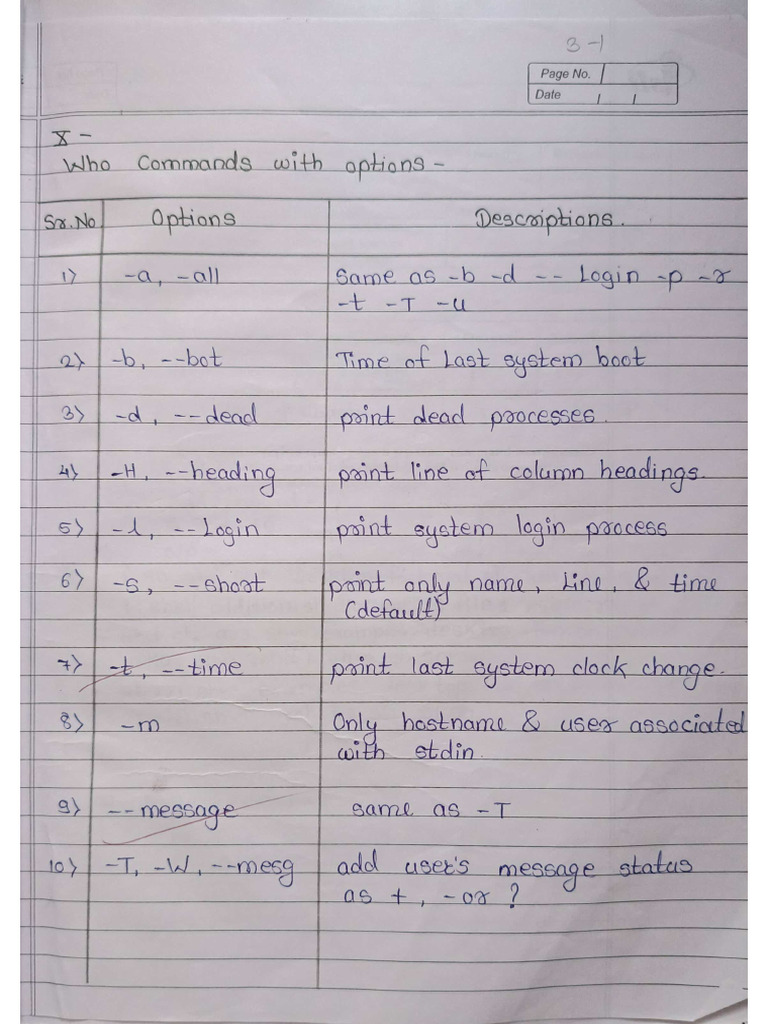 3-1
Page No.
Date
X-
Who Commands with options -
Sr.No Options Descriptions.
1) -a, -all Same as -b -d -- Login -p -r
-t -T -u
2) -b, --bot Time of Last system boot
3) -d, --dead print dead processes.
4) -H, --heading print line of column headings.
5) -l, --Login print system login process
6) -s, --short print only name, Line, & time
(default)
7) -t, --time print last system clock change.
8) -m Only hostname & user associated
with stdin.
9) --message same as -T
10) -T, -W, --mesg add user's message status
as +, - or ?